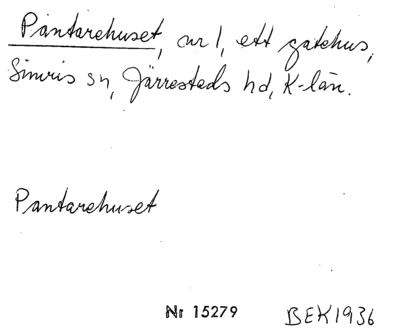 Pantarehuset, nr 1, ett gatehus,
Simris sn, Järrestads hd, K-län.
Pantarehuset
Nr 15279 BEK1936